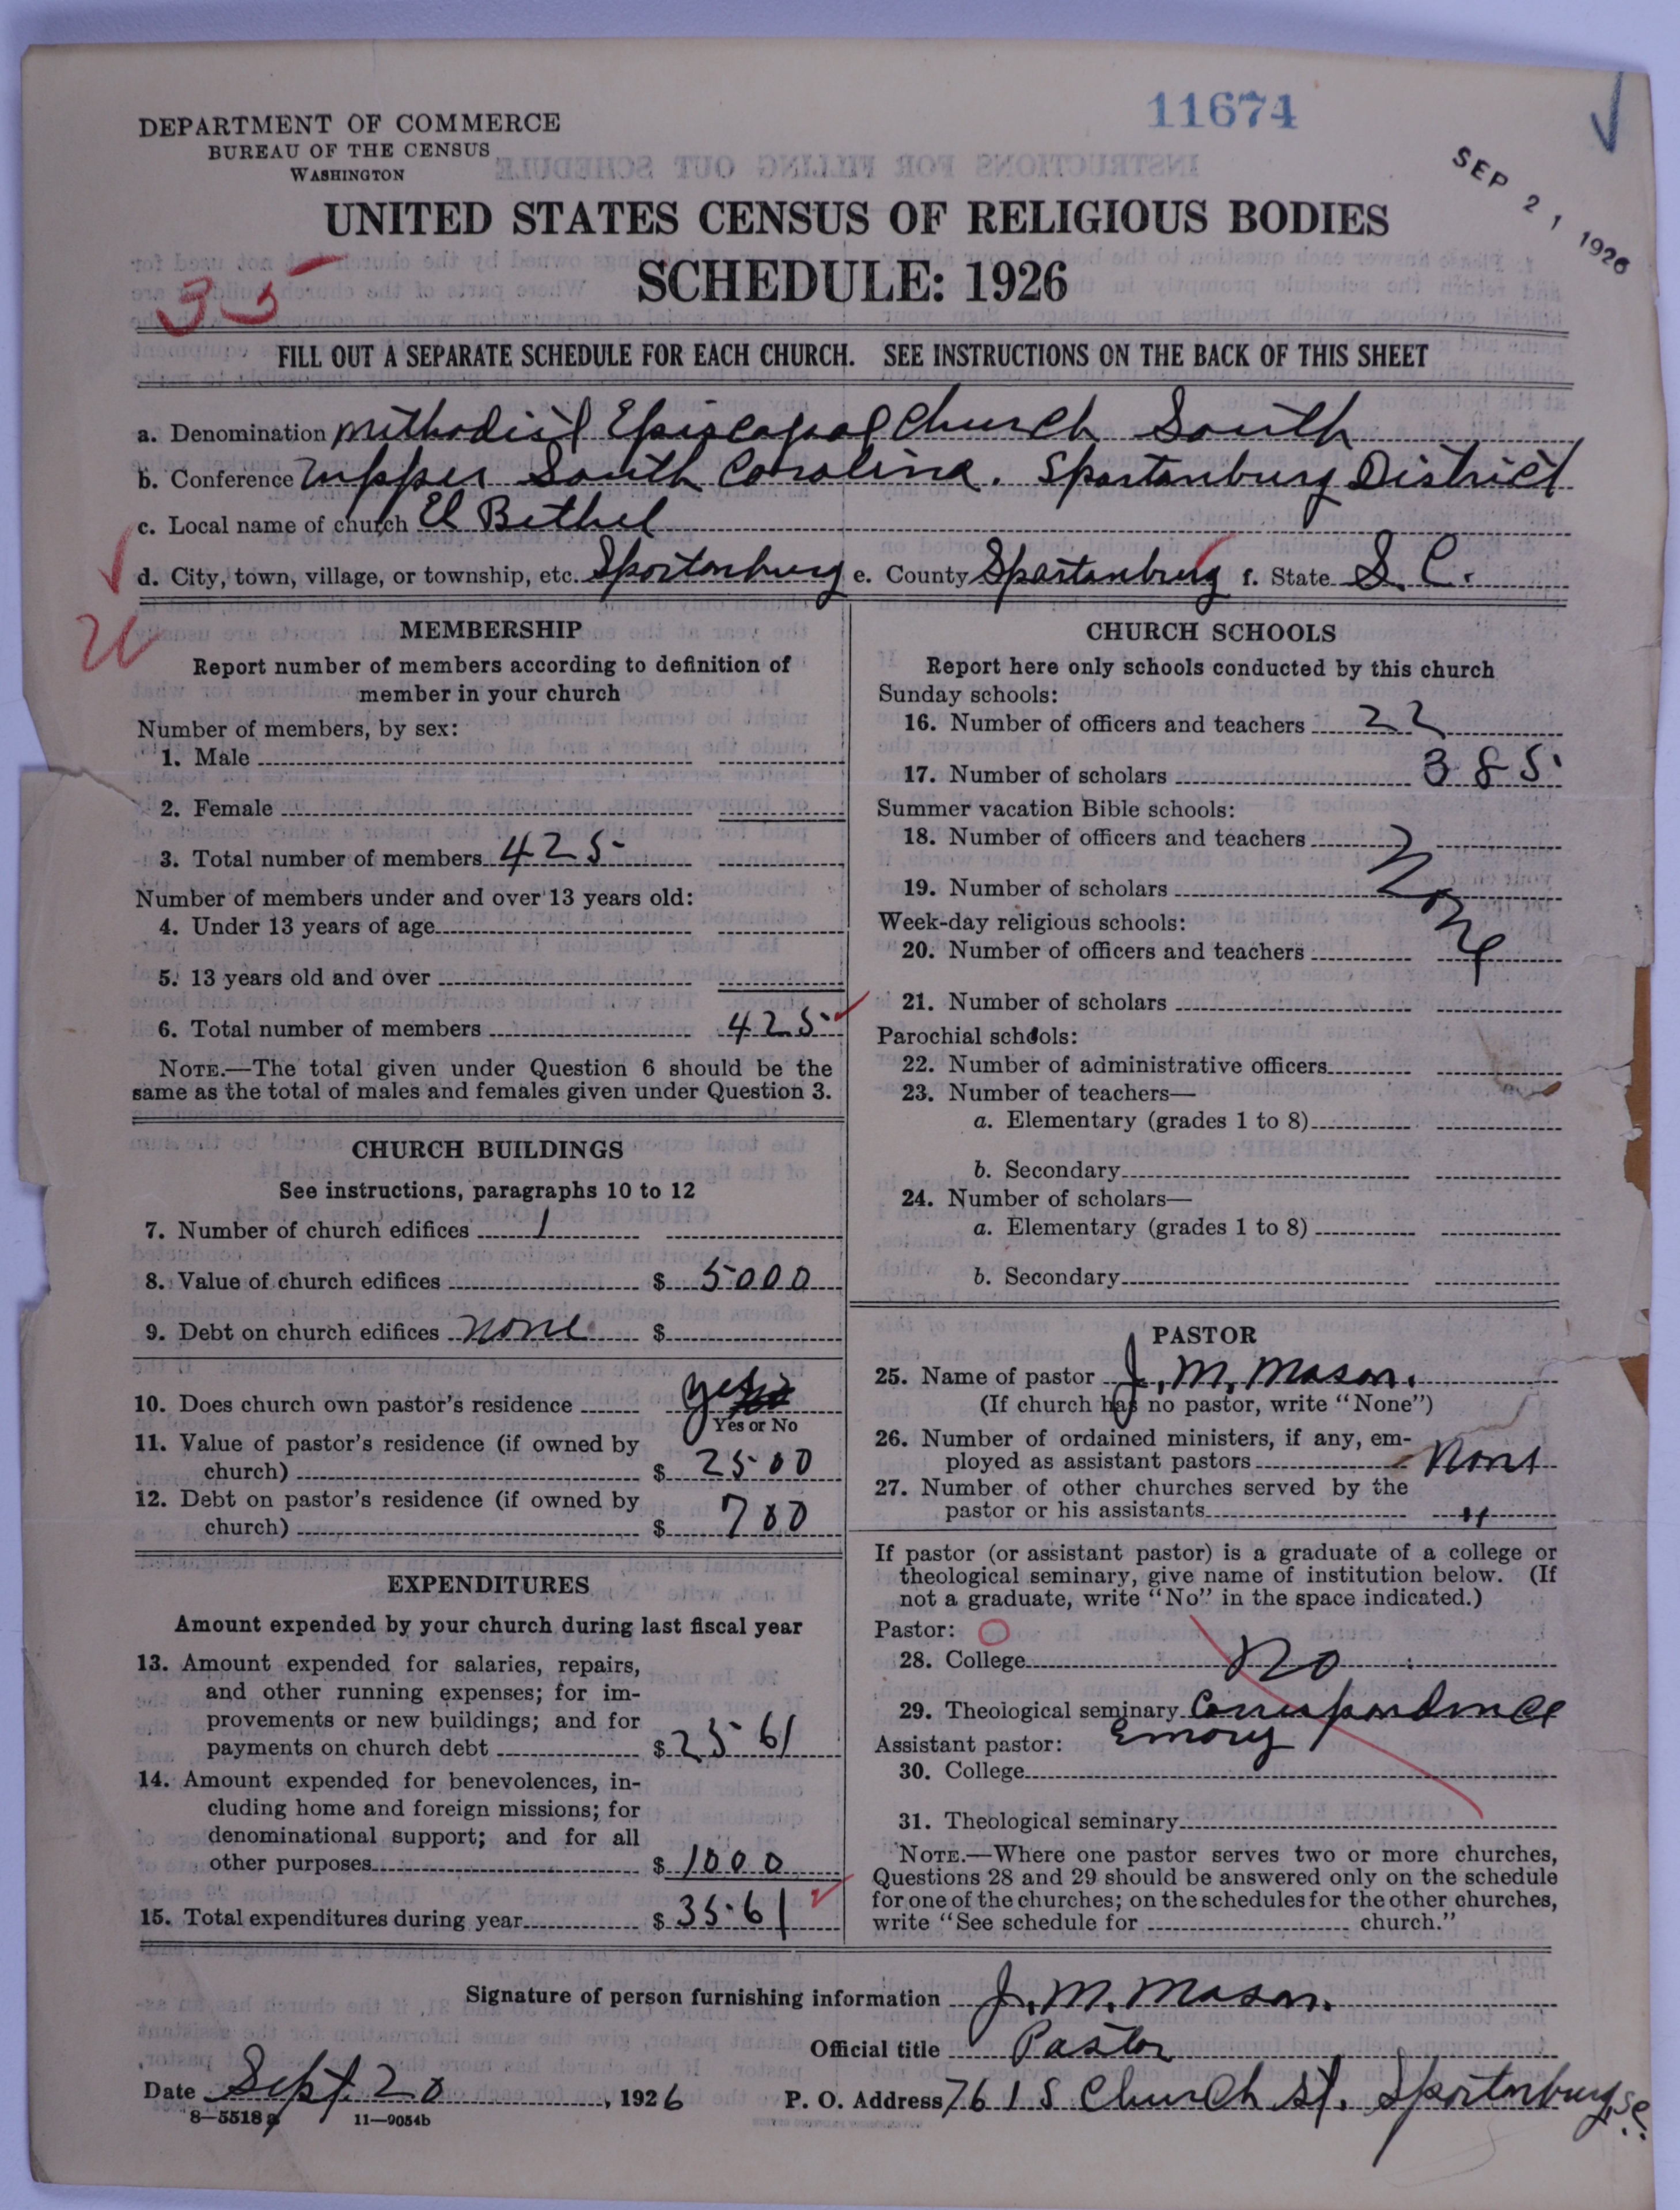 11674
SEP 21 1926
DEPARTMENT OF COMMERCE
BUREAU OF THE CENSUS
WASHINGTON
UNITED STATES CENSUS OF RELIGIOUS BODIES
SCHEDULE: 1926
35
FILL OUT A SEPARATE SCHEDULE FOR EACH CHURCH. SEE INSTRUCTIONS ON THE BACK OF THIS SHEET
a. Denomination Methodist Episcopal Church South
b. Conference Upper South Carolina. Spartanburg District
c. Local name of church El Bethel
d. City, town, village, or township, etc. Spartanburg e. County Spartanburg f. State S. C.
MEMBERSHIP
Report number of members according to definition of
member in your church
Number of members, by sex:
1. Male
2. Female
3. Total number of members 425
Number of members under and over 13 years old:
4. Under 13 years of age
5. 13 years old and over
6. Total number of members 425
NOTE.—The total given under Question 6 should be the
same as the total of males and females given under Question 3.
CHURCH BUILDINGS
See instructions, paragraphs 10 to 12
7. Number of church edifices 1
8. Value of church edifices $ 5000
9. Debt on church edifices none $
10. Does church own pastor's residence yes
Yes or No
11. Value of pastor's residence (if owned by
church) $ 2500
12. Debt on pastor's residence (if owned by
church) $ 700
EXPENDITURES
Amount expended by your church during last fiscal year
13. Amount expended for salaries, repairs,
and other running expenses; for im-
provements or new buildings; and for
payments on church debt $ 2561
14. Amount expended for benevolences, in-
cluding home and foreign missions; for
denominational support; and for all
other purposes $ 1000
15. Total expenditures during year $ 3561
CHURCH SCHOOLS
Report here only schools conducted by this church
Sunday schools:
16. Number of officers and teachers 22
17. Number of scholars 385
Summer vacation Bible schools:
18. Number of officers and teachers None
19. Number of scholars
Week-day religious schools:
20. Number of officers and teachers
21. Number of scholars
Parochial schools:
22. Number of administrative officers
23. Number of teachers—
a. Elementary (grades 1 to 8)
b. Secondary
24. Number of scholars—
a. Elementary (grades 1 to 8)
b. Secondary
PASTOR
25. Name of pastor J. M. Mason.
(If church has no pastor, write "None")
26. Number of ordained ministers, if any, em-
ployed as assistant pastors None
27. Number of other churches served by the
pastor or his assistants
If pastor (or assistant pastor) is a graduate of a college or
theological seminary, give name of institution below. (If
not a graduate, write "No" in the space indicated.)
Pastor:
28. College No
29. Theological seminary Correspondence
Emory
Assistant pastor:
30. College
31. Theological seminary
NOTE.—Where one pastor serves two or more churches,
Questions 28 and 29 should be answered only on the schedule
for one of the churches; on the schedules for the other churches,
write "See schedule for church."
Signature of person furnishing information J. M. Mason.
Official title Pastor
Date Sept. 20, 1926 P. O. Address 761 S Church St. Spartanburg, S.C.
8—5518a 11—9054b